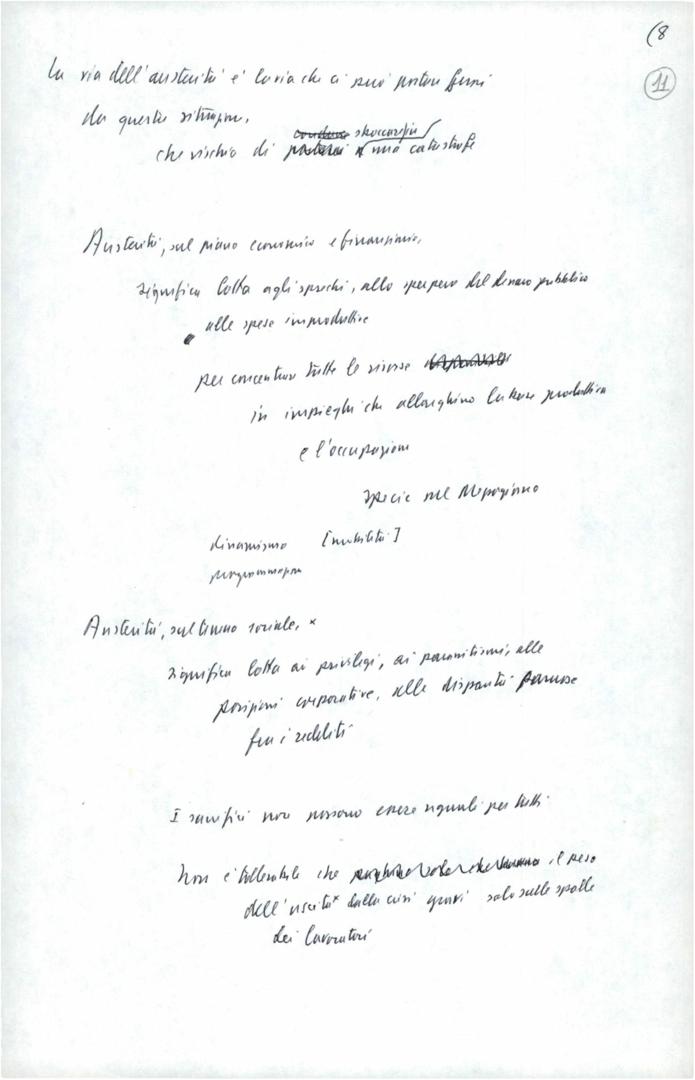 (8
11
La via dell'austerità è la via che ci può portare fuori
da questa situazione,
condurre sboccare in
che rischia di portarci a una catastrofe
Austerità, sul piano economico e finanziario,
significa lotta agli sprechi, allo sperpero del denaro pubblico
alle spese improduttive
per concentrare tutte le risorse
in impieghi che allarghino la base produttiva
e l'occupazione
specie nel Mezzogiorno
dinamismo [mobilità]
programmazione
Austerità, sul terreno sociale, *
significa lotta ai privilegi, ai parassitismi, alle
posizioni corporative, alle disparità
fra i redditi
I sacrifici non possono essere uguali per tutti
Non è tollerabile che il peso
dell'uscita* dalla crisi gravi solo sulle spalle
dei lavoratori